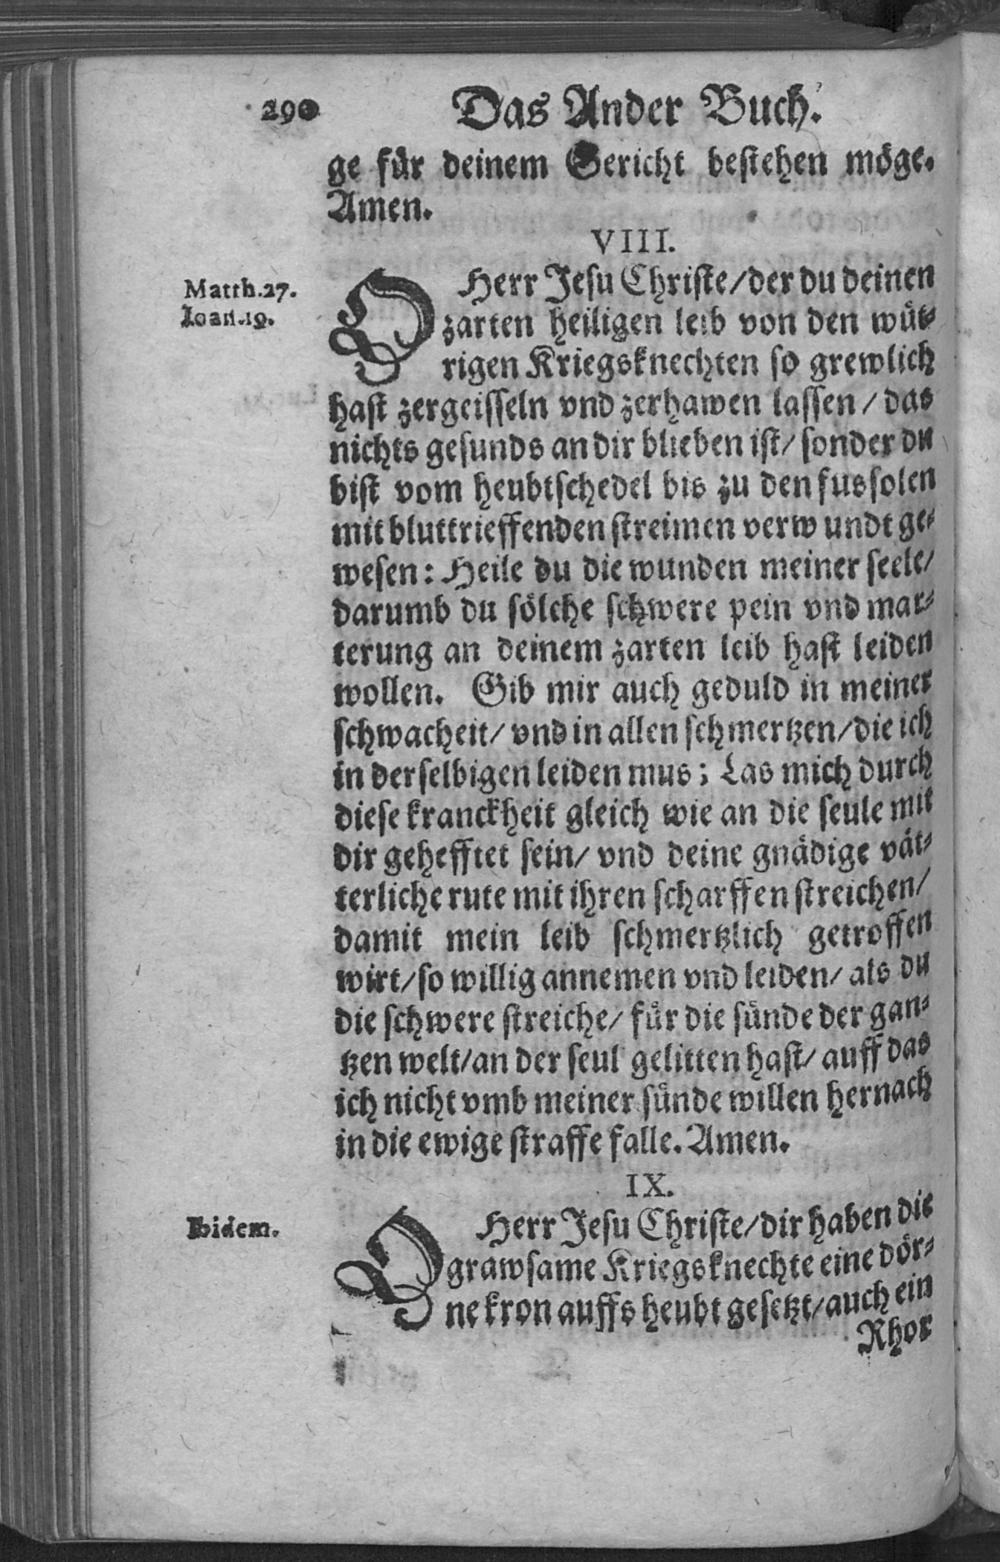 290 Das Ander Buch.
ge für deinem Gericht bestehen möge.
Amen.
VIII.
Matth.27.
Ioan.19.
O Herr Jesu Christe/der du deinen
zarten heiligen leib von den wüt⸗
rigen Kriegsknechten so grewlich
hast zergeisseln vnd zerhawen lassen/das
nichts gesunds an dir blieben ist/sonder du
bist vom heubtschedel bis zu den fussolen
mit bluttrieffenden streimen verwundt ge⸗
wesen: Heile du die wunden meiner seele/
darumb du sölche schwere pein vnd mar⸗
terung an deinem zarten leib hast leiden
wollen. Gib mir auch geduld in meiner
schwacheit/vnd in allen schmertzen/die ich
in derselbigen leiden mus; Las mich durch
diese kranckheit gleich wie an die seule mit
dir gehefftet sein/vnd deine gnädige vät⸗
terliche rute mit ihren scharffen streichen/
damit mein leib schmertzlich getroffen
wirt/so willig annemen vnd leiden/als du
die schwere streiche/für die sünde der gan⸗
tzen welt/an der seul gelitten hast/auff das
ich nicht vmb meiner sünde willen hernach
in die ewige straffe falle. Amen.
IX.
Ibidem.
O Herr Jesu Christe/dir haben die
grawsame Kriegsknechte eine dör⸗
ne kron auffs heubt gesetzt/auch ein
Rhor